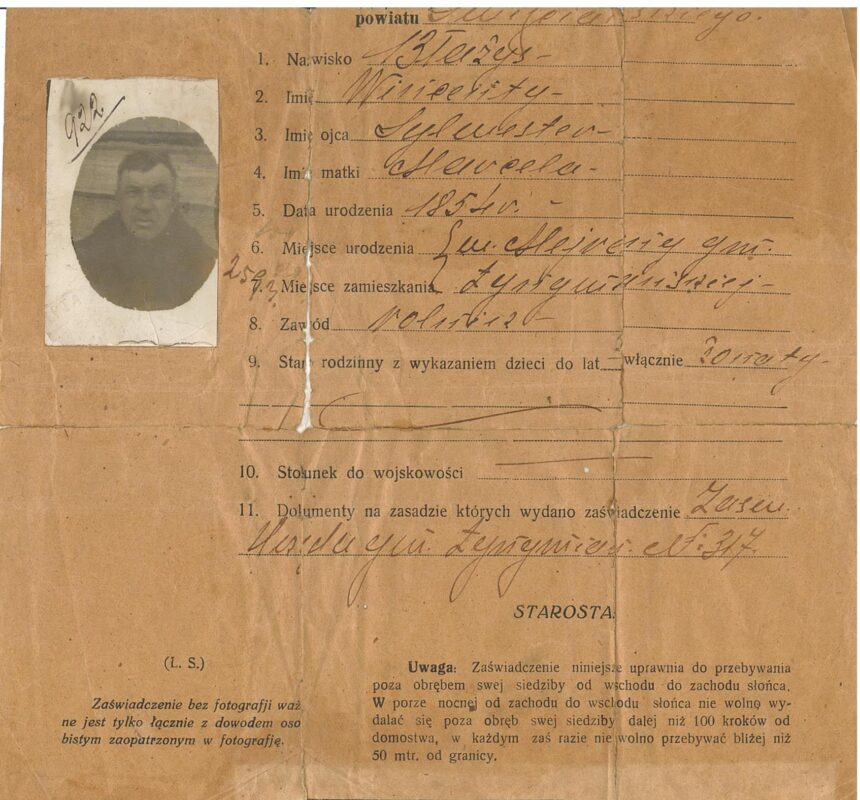 powiatu Święciańskiego.
1. Nazwisko Błażys-
2. Imię Wincenty-
3. Imię ojca Sylwester-
4. Imię matki Marcela-
5. Data urodzenia 1854r. -
6. Miejsce urodzenia w. Mejrany gm.
7. Miejsce zamieszkania Żyngmiańskiej-
8. Zawód rolnik-
9. Stan rodzinny z wykazaniem dzieci do lat — włącznie żonaty-
10. Stosunek do wojskowości
11. Dokumenty na zasadzie których wydano zaświadczenie Zaśw.
Urzędu gm. №: 317.
922
STAROSTA:
(L. S.)
Zaświadczenie bez fotografji waż
ne jest tylko łącznie z dowodem oso
bistym zaopatrzonym w fotografję.
Uwaga: Zaświadczenie niniejsze uprawnia do przebywania
poza obrębem swej siedziby od wschodu do zachodu słońca.
W porze nocnej od zachodu do wschodu słońca nie wolno wy-
dalać się poza obręb swej siedziby dalej niż 100 kroków od
domostwa, w każdym zaś razie nie wolno przebywać bliżej niż
50 mtr. od granicy.